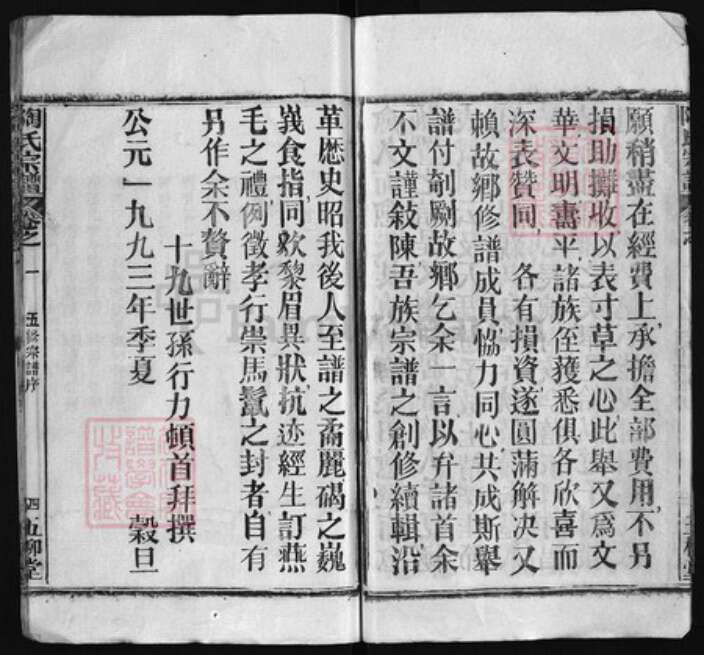 願稍盡在經費上承擔全部費用不另
損助攤收以表寸草之心此舉又為文
華文明壽平諸族侄獲悉俱各欣喜而
深表贊同 各有損資遂圓滿解决又
賴故鄉修譜成員恊力同心共成斯舉
譜付剞劂故鄉乞余一言以弁諸首余
不文謹敍陳吾族宗譜之創修續輯沿
革歷史昭我後人至譜之喬麗碣之巍
峩食指同欢黎眉異狀抗迹經生訂燕
毛之禮例徵孝行崇馬鬣之封者自有
另作余不贅辭
十九世孫行力頓首拜撰
公元一九九三年季夏 穀旦
陶氏宗譜 卷之一 五修宗譜序 四 五柳堂